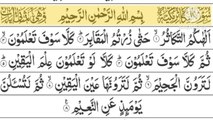 بِسْمِ اللهِ الرَّحْمٰنِ الرَّحِيْمِ
اَلْهٰىكُمُ التَّكَاثُرُ ۙ حَتّٰى زُرْتُمُ الْمَقَابِرَ ۗ كَلَّا سَوْفَ تَعْلَمُوْنَ ۙ
ثُمَّ كَلَّا سَوْفَ تَعْلَمُوْنَ ۗ كَلَّا لَوْ تَعْلَمُوْنَ عِلْمَ الْيَقِيْنِ ۗ
لَتَرَوُنَّ الْجَحِيْمَ ۙ ثُمَّ لَتَرَوُنَّهَا عَيْنَ الْيَقِيْنِ ۙ ثُمَّ لَتُسْـَٔلُنَّ
يَوْمَىِٕذٍ عَنِ النَّعِيْمِ